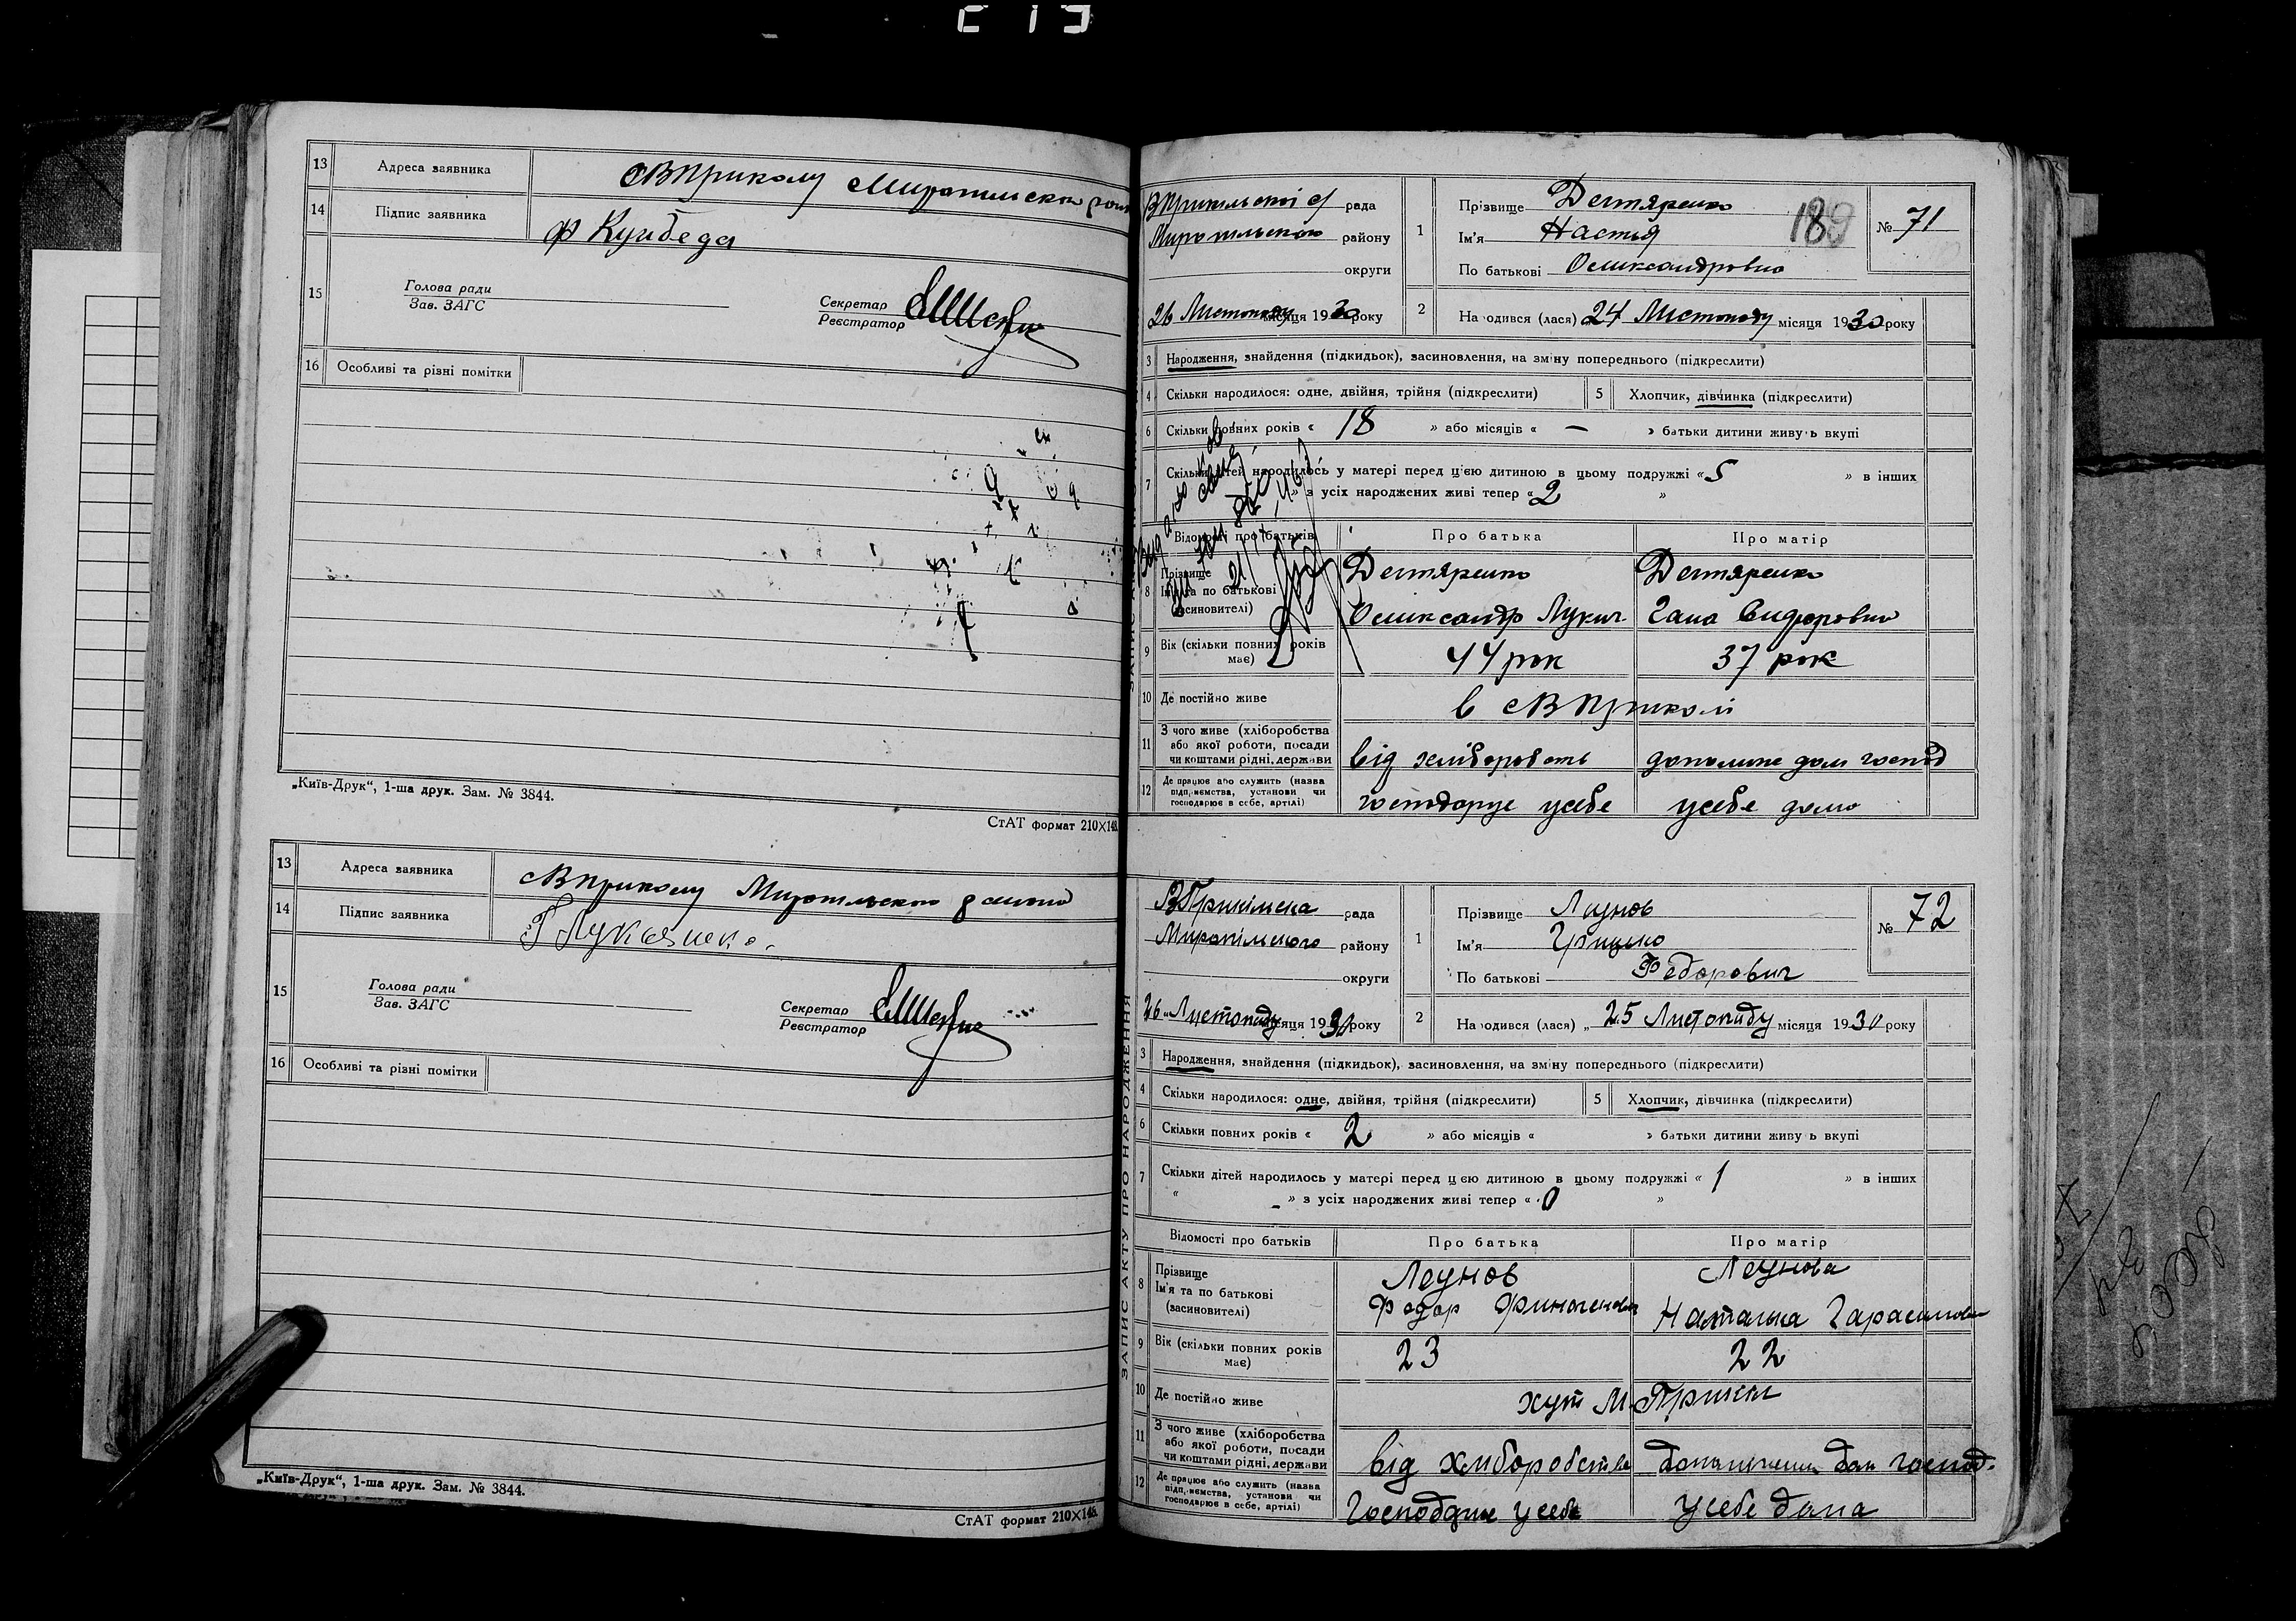 13 Адреса заявника с ВПриколу Миропильского
14 Підпис заявника Ф Кумбеда
15 Голова ради
Зав. ЗАГС
Секретар
Реєстратор
16 Особливі та різні помітки
„Київ-Друк“, 1-ша друк. Зам. № 3844.
СтАТ формат 210×148.
13 Адреса заявника с ВПриколу Миропильского району
14 Підпис заявника Г Лукьянеко.
15 Голова ради
Зав. ЗАГС
Секретар
Реєстратор
16 Особливі та різні помітки
„Київ-Друк“, 1-ша друк. Зам. № 3844.
СтАТ формат 210×148.
рада
Миропильского району
округи
26 Листопаду місяця 1930 року
1 Прізвище Дегтяренко
Ім'я Настья
По батькові Олександровна
189
№ 71
2 Народився (лася) 24 Листопаду місяця 1930 року
3 Народження, знайдення (підкидьок), засиновлення, на зміну попереднього (підкреслити)
4 Скільки народилося: одне, двійня, трійня (підкреслити) 5 Хлопчик, дівчинка (підкреслити)
6 Скільки повних років « 18 » або місяців « — » батьки дитини живуть вкупі
7 Скільки дітей народилось у матері перед цією дитиною в цьому подружжі « 5 » в інших
» з усіх народжених живі тепер « 2 »
Відомості про батьків Про батька Про матір
8 Прізвище Дегтяренко Дегтяренко
Ім'я та по батькові Оликсандр Лукич Гана
(засиновителі)
9 Вік (скільки повних років має) 44 рок 37 рок
10 Де постійно живе в с ВПриколі
11 З чого живе (хліборобства або якої роботи, посади чи коштами рідні, держави від хліборобств дом господ
12 Де працює або служить (назва підприємства, установи чи господарює в себе, артілі) господарує усебе усебе дома
ЗАПИС АКТУ ПРО НАРОДЖЕННЯ
ВПрикілська рада
Миропілського району
округи
26 Листопаду місяця 1930 року
1 Прізвище Леунов
Ім'я Грицько
По батькові Федорович
№ 72
2 Народився (лася) „ 25 Листопаду місяця 1930 року
3 Народження, знайдення (підкидьок), засиновлення, на зміну попереднього (підкреслити)
4 Скільки народилося: одне, двійня, трійня (підкреслити) 5 Хлопчик, дівчинка (підкреслити)
6 Скільки повних років « 2 » або місяців « » батьки дитини живуть вкупі
7 Скільки дітей народилось у матері перед цією дитиною в цьому подружжі « 1 » в інших
« » з усіх народжених живі тепер « 0 »
Відомості про батьків Про батька Про матір
8 Прізвище Леунов Леунова
Ім'я та по батькові Федор Наталка Гарасимовна
(засиновителі)
9 Вік (скільки повних років має) 23 22
10 Де постійно живе хут М. Прикол
11 З чого живе (хліборобства або якої роботи, посади чи коштами рідні, держави від хліборобства дом господ.
12 Де працює або служить (назва підприємства, установи чи господарює в себе, артілі) усебе усебе дома